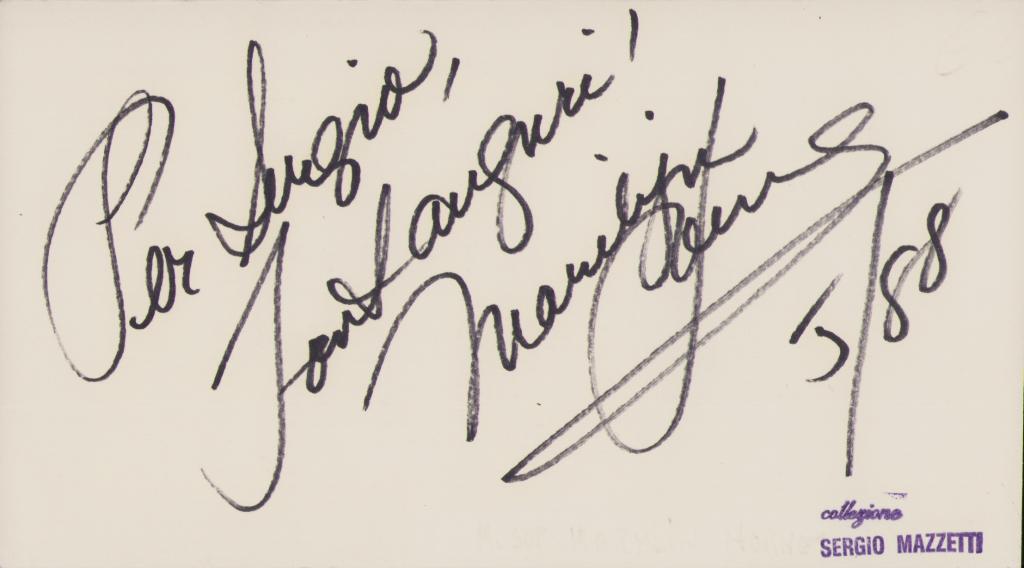 Per Sergio,
Tanti auguri!
Marilyn Horne
5/88
collezione
SERGIO MAZZETTI